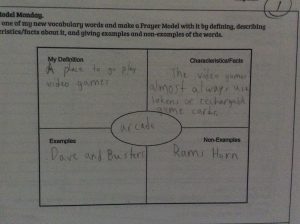 Model Monday.
one of my new vocabulary words and make a Frayer Model with it by defining, describing
eristics/facts about it, and giving examples and non-examples of the words.
My Definition
A place to go play
video games
Characteristics/Facts
The video games
almost always use
tokens or rechargable
game cards
arcade
Examples
Dave and Busters
Non-Examples
Rams Horn